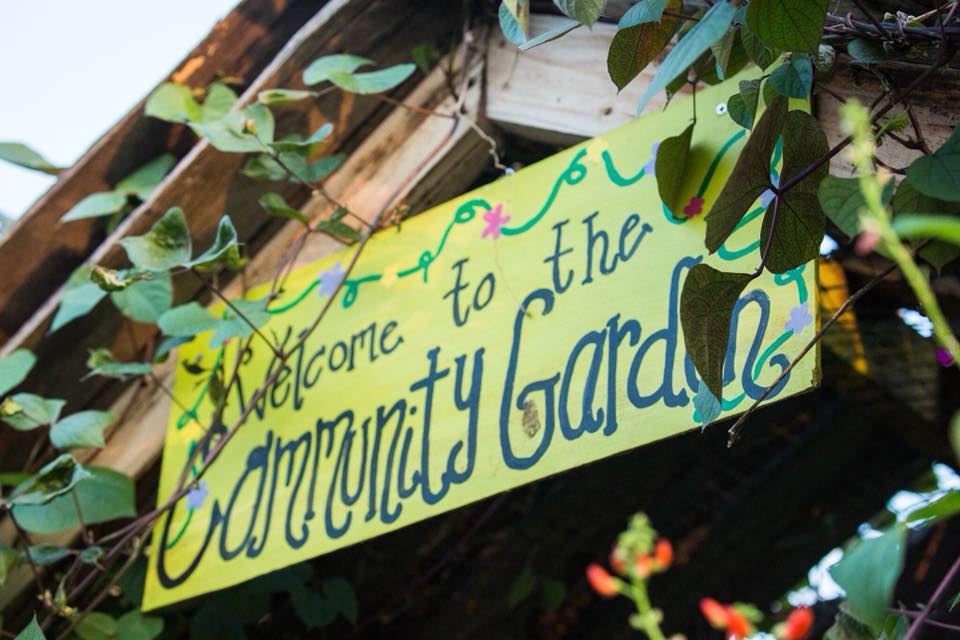 Welcome to the
Community Garden